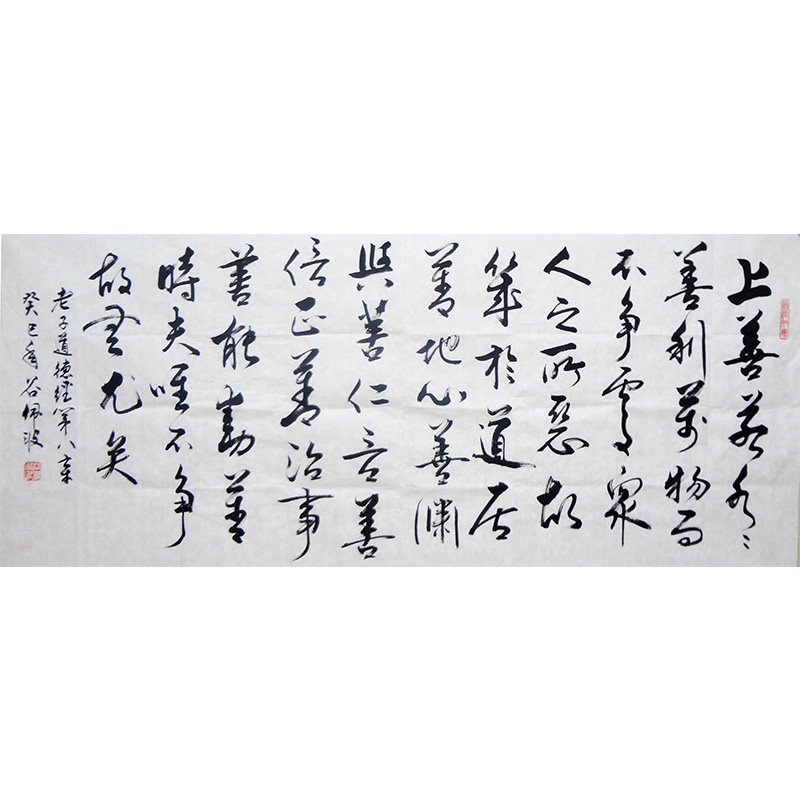 上善若水〻
善利萬物而
不争處眾
人之所惡故
幾於道居
善地心善渊
與善仁言善
信正善治事
善能動善
時夫唯不争
故無尤矣
老子道德經第八章
癸巳年谷佩波